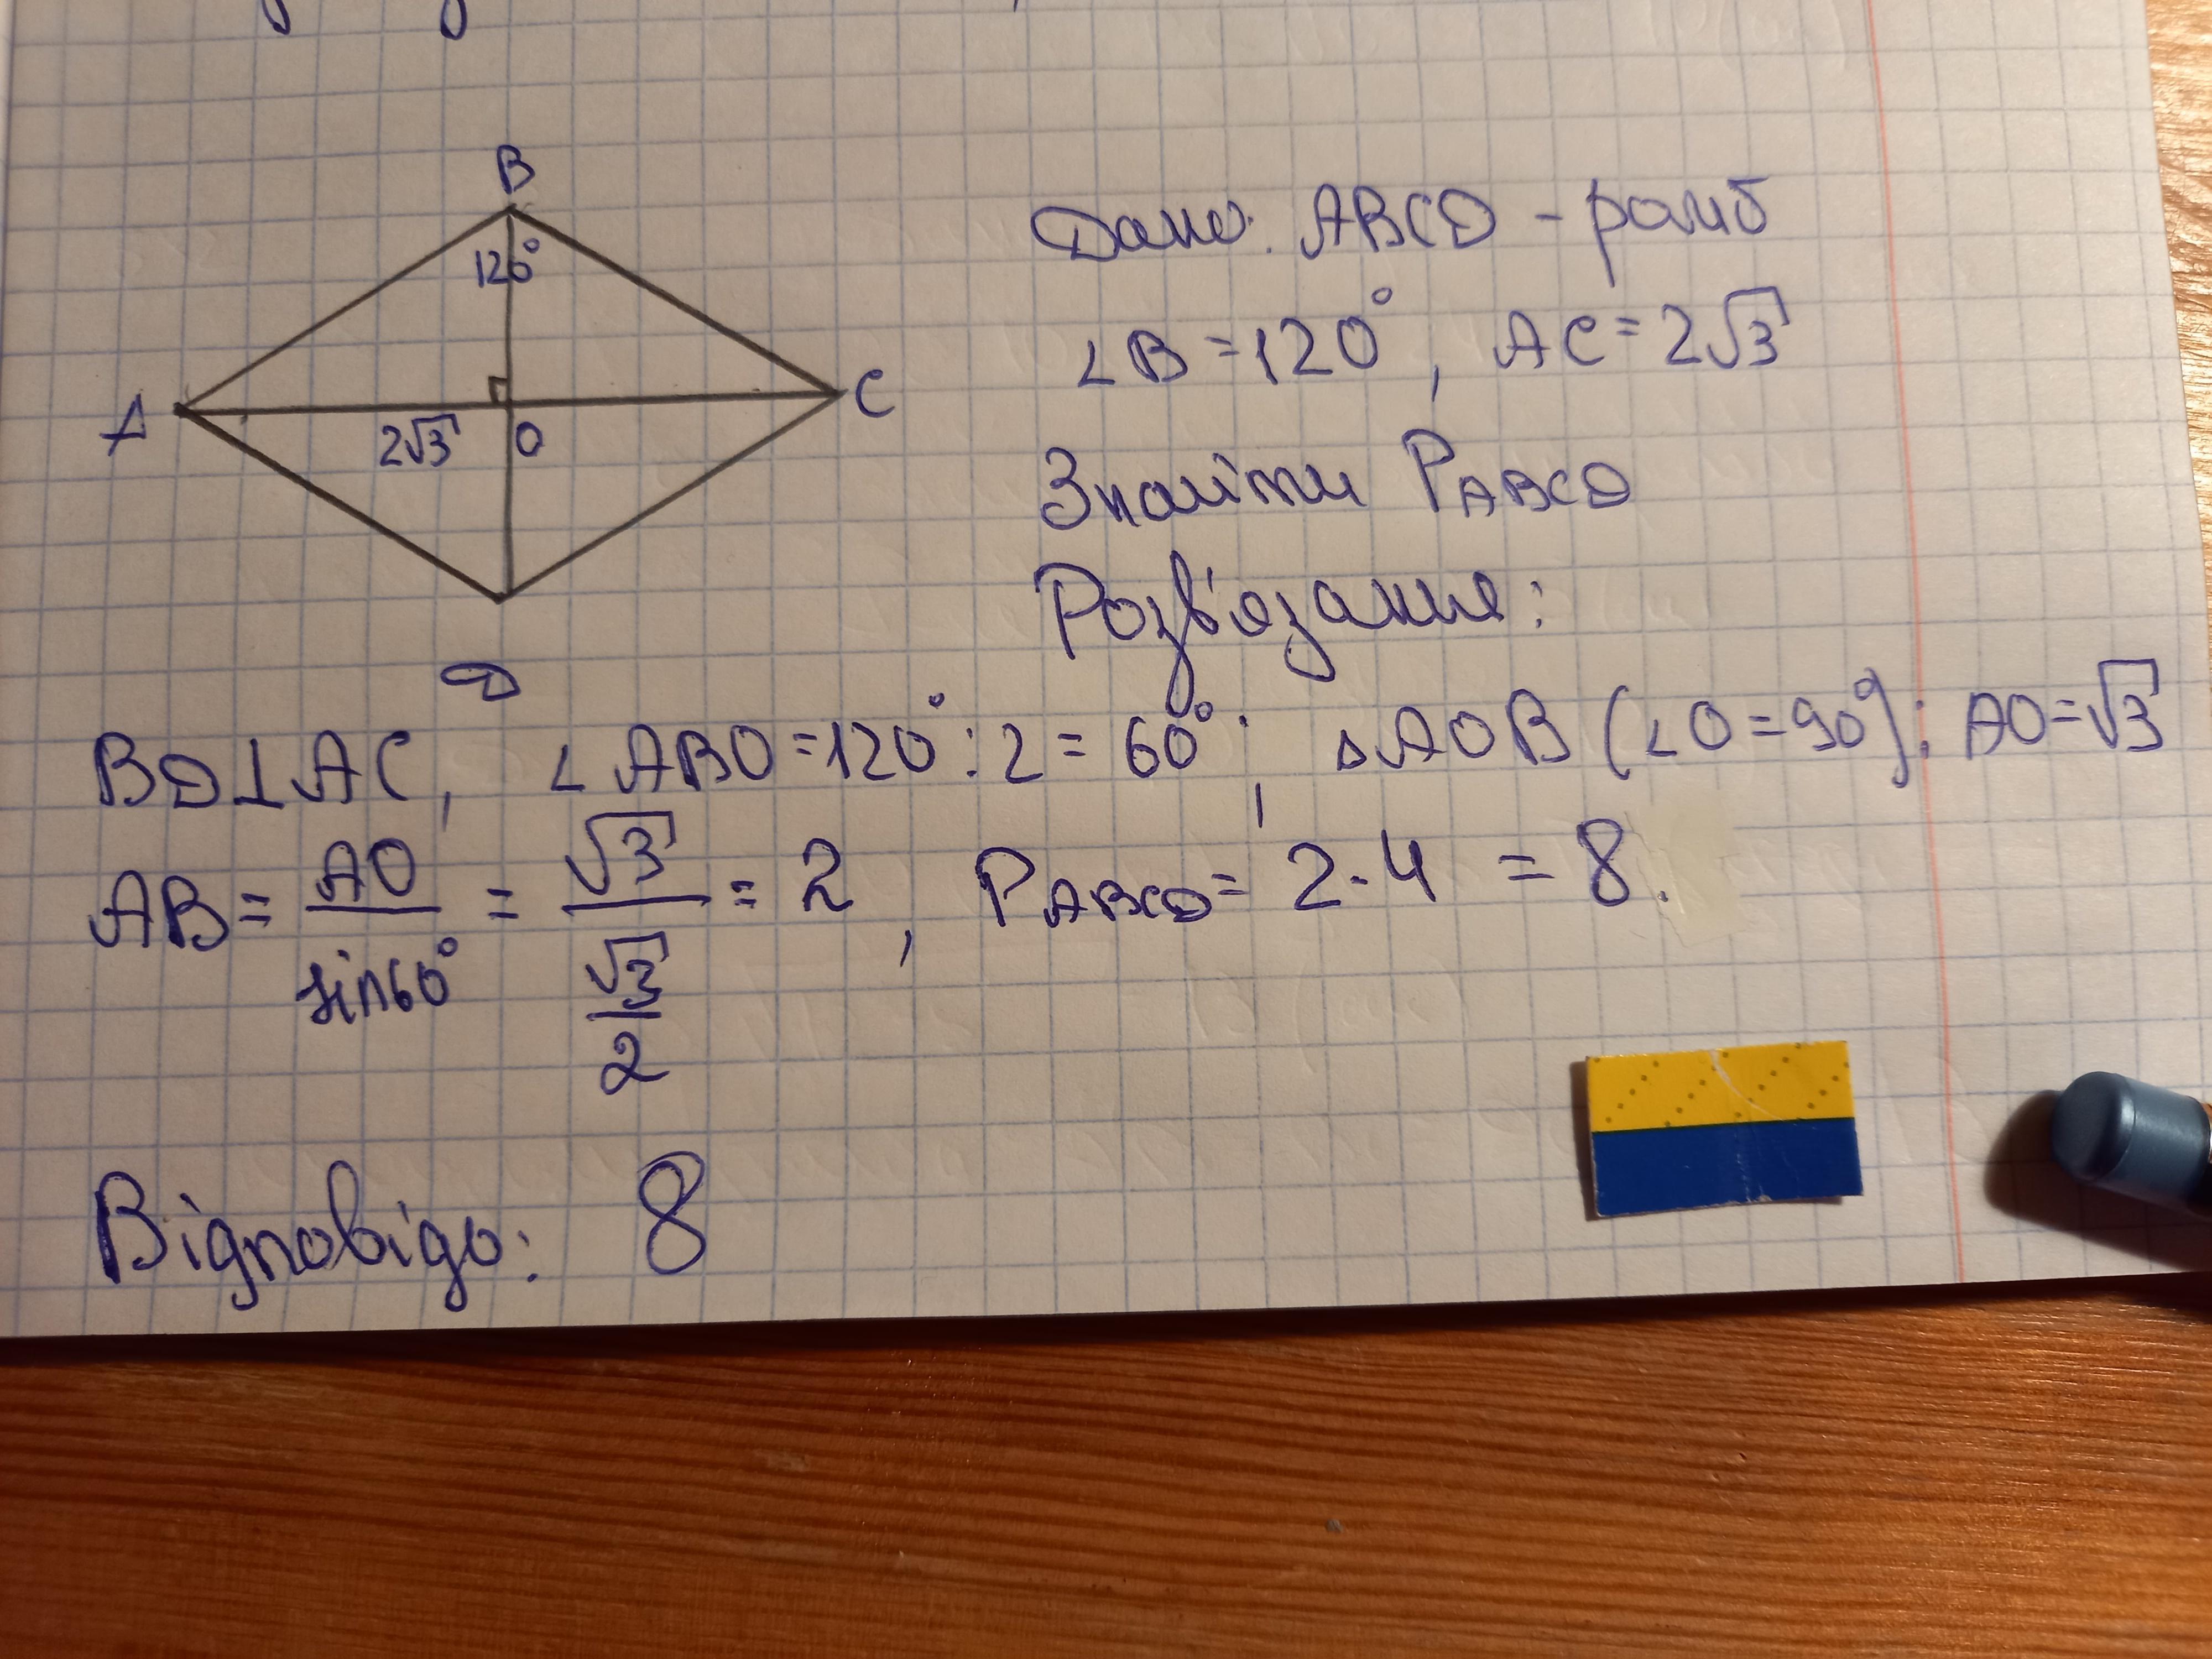 B
120°
A
C
2√3
O
D
Дано: ABCD - ромб
∠B = 120°, AC = 2√3
Знайти PABCD
Розв'язання:
BD⊥AC, ∠ABO = 120° : 2 = 60°; △AOB (∠O = 90°): AO = √3
AB = AO/sin60° = √3/(√3/2) = 2, PABCD = 2·4 = 8.
Відповідь: 8